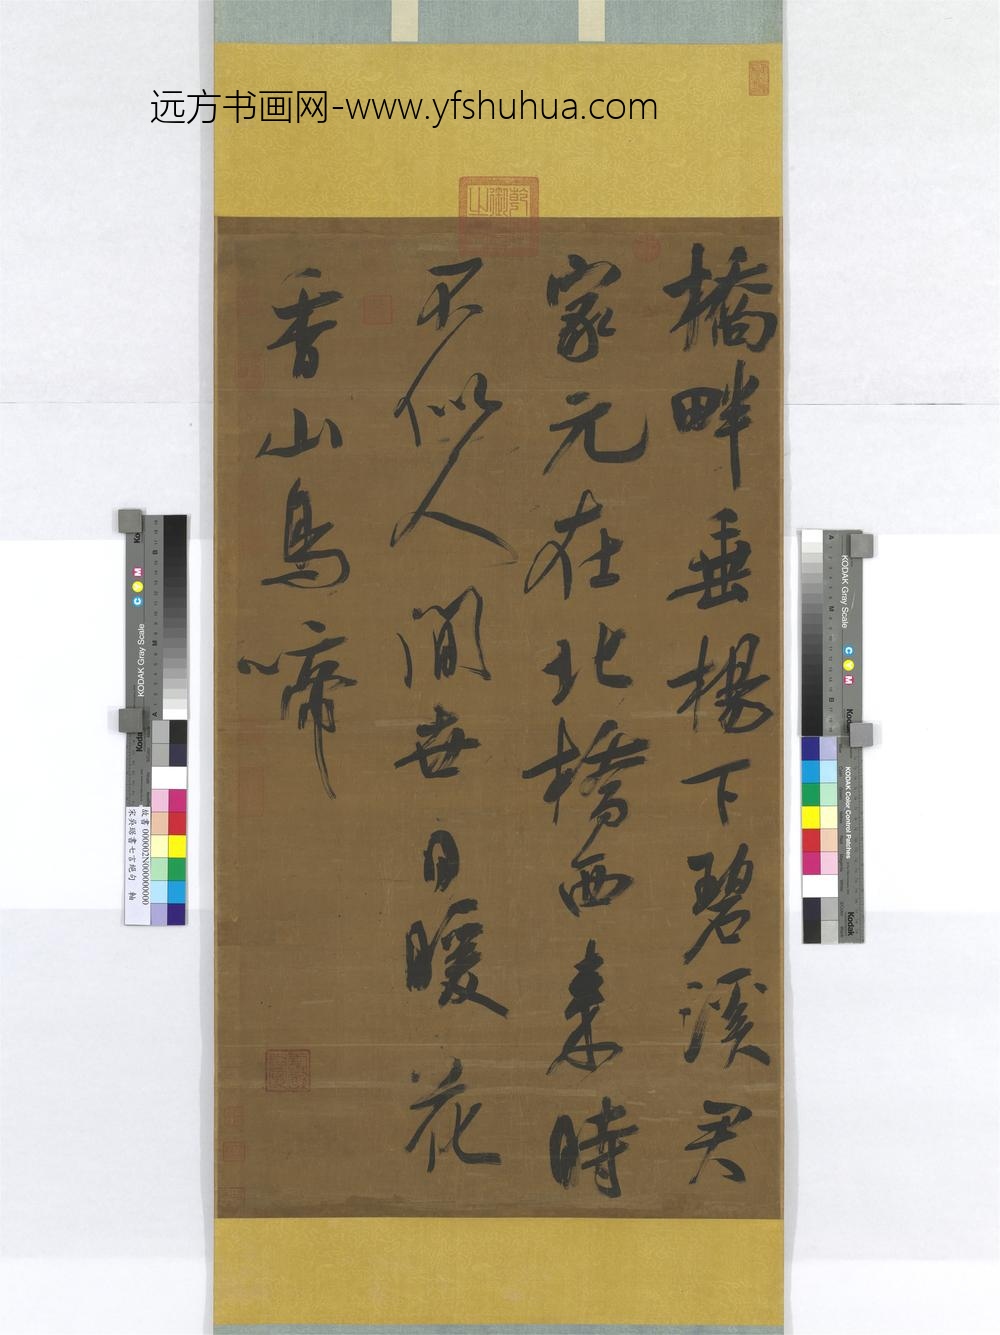 远方书画网-www.yfshuhua.com
橋畔垂楊下碧溪君
家元在北橋西來時
不似人間世日暖花
香山鳥啼
KODAK Gray Scale
KODAK Color Control Patches
Kodak
KODAK Gray Scale
Kodak
故書 000002N000000000
宋吳琚書七言絕句 軸